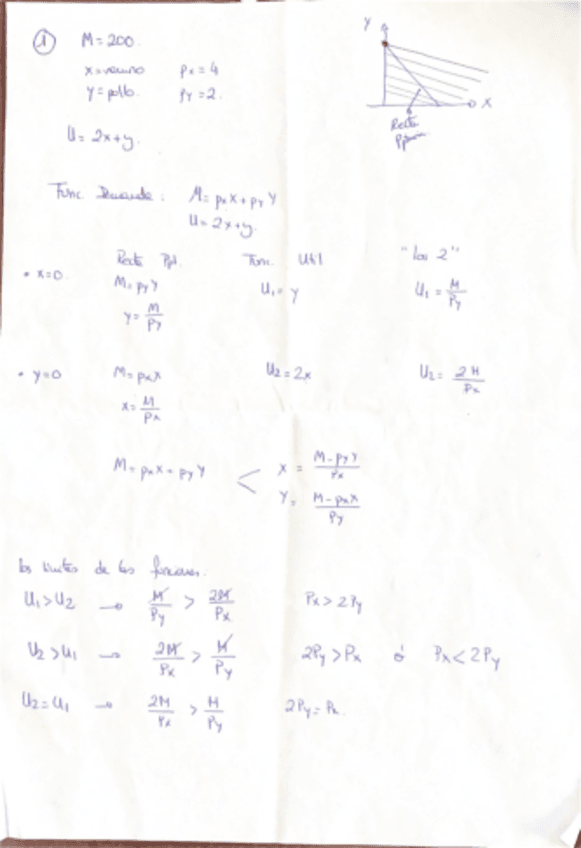 1 M=200.
x=vacuno px=4
y=pollo. py=2.
U=2x+y.
Y
X
Recta
Func Demanda: M=pxX+pyY
U=2x+y.
Recta Ppt. Func. Util "los 2"
• x=0. M=pyY U1=y U1=M/Py
y=M/Py
• y=0 M=pxX U2=2x U2=2M/Px
x=M/Px
M=pxX+pyY < X=M-pyY/Px
Y=M-pxX/Py
los limites de las funciones.
U1>U2 → M/Py > 2M/Px Px>2Py
U2>U1 → 2M/Px > M/Py 2Py>Px ó Px<2Py
U2=U1 → 2M/Px > M/Py 2Py=Px.